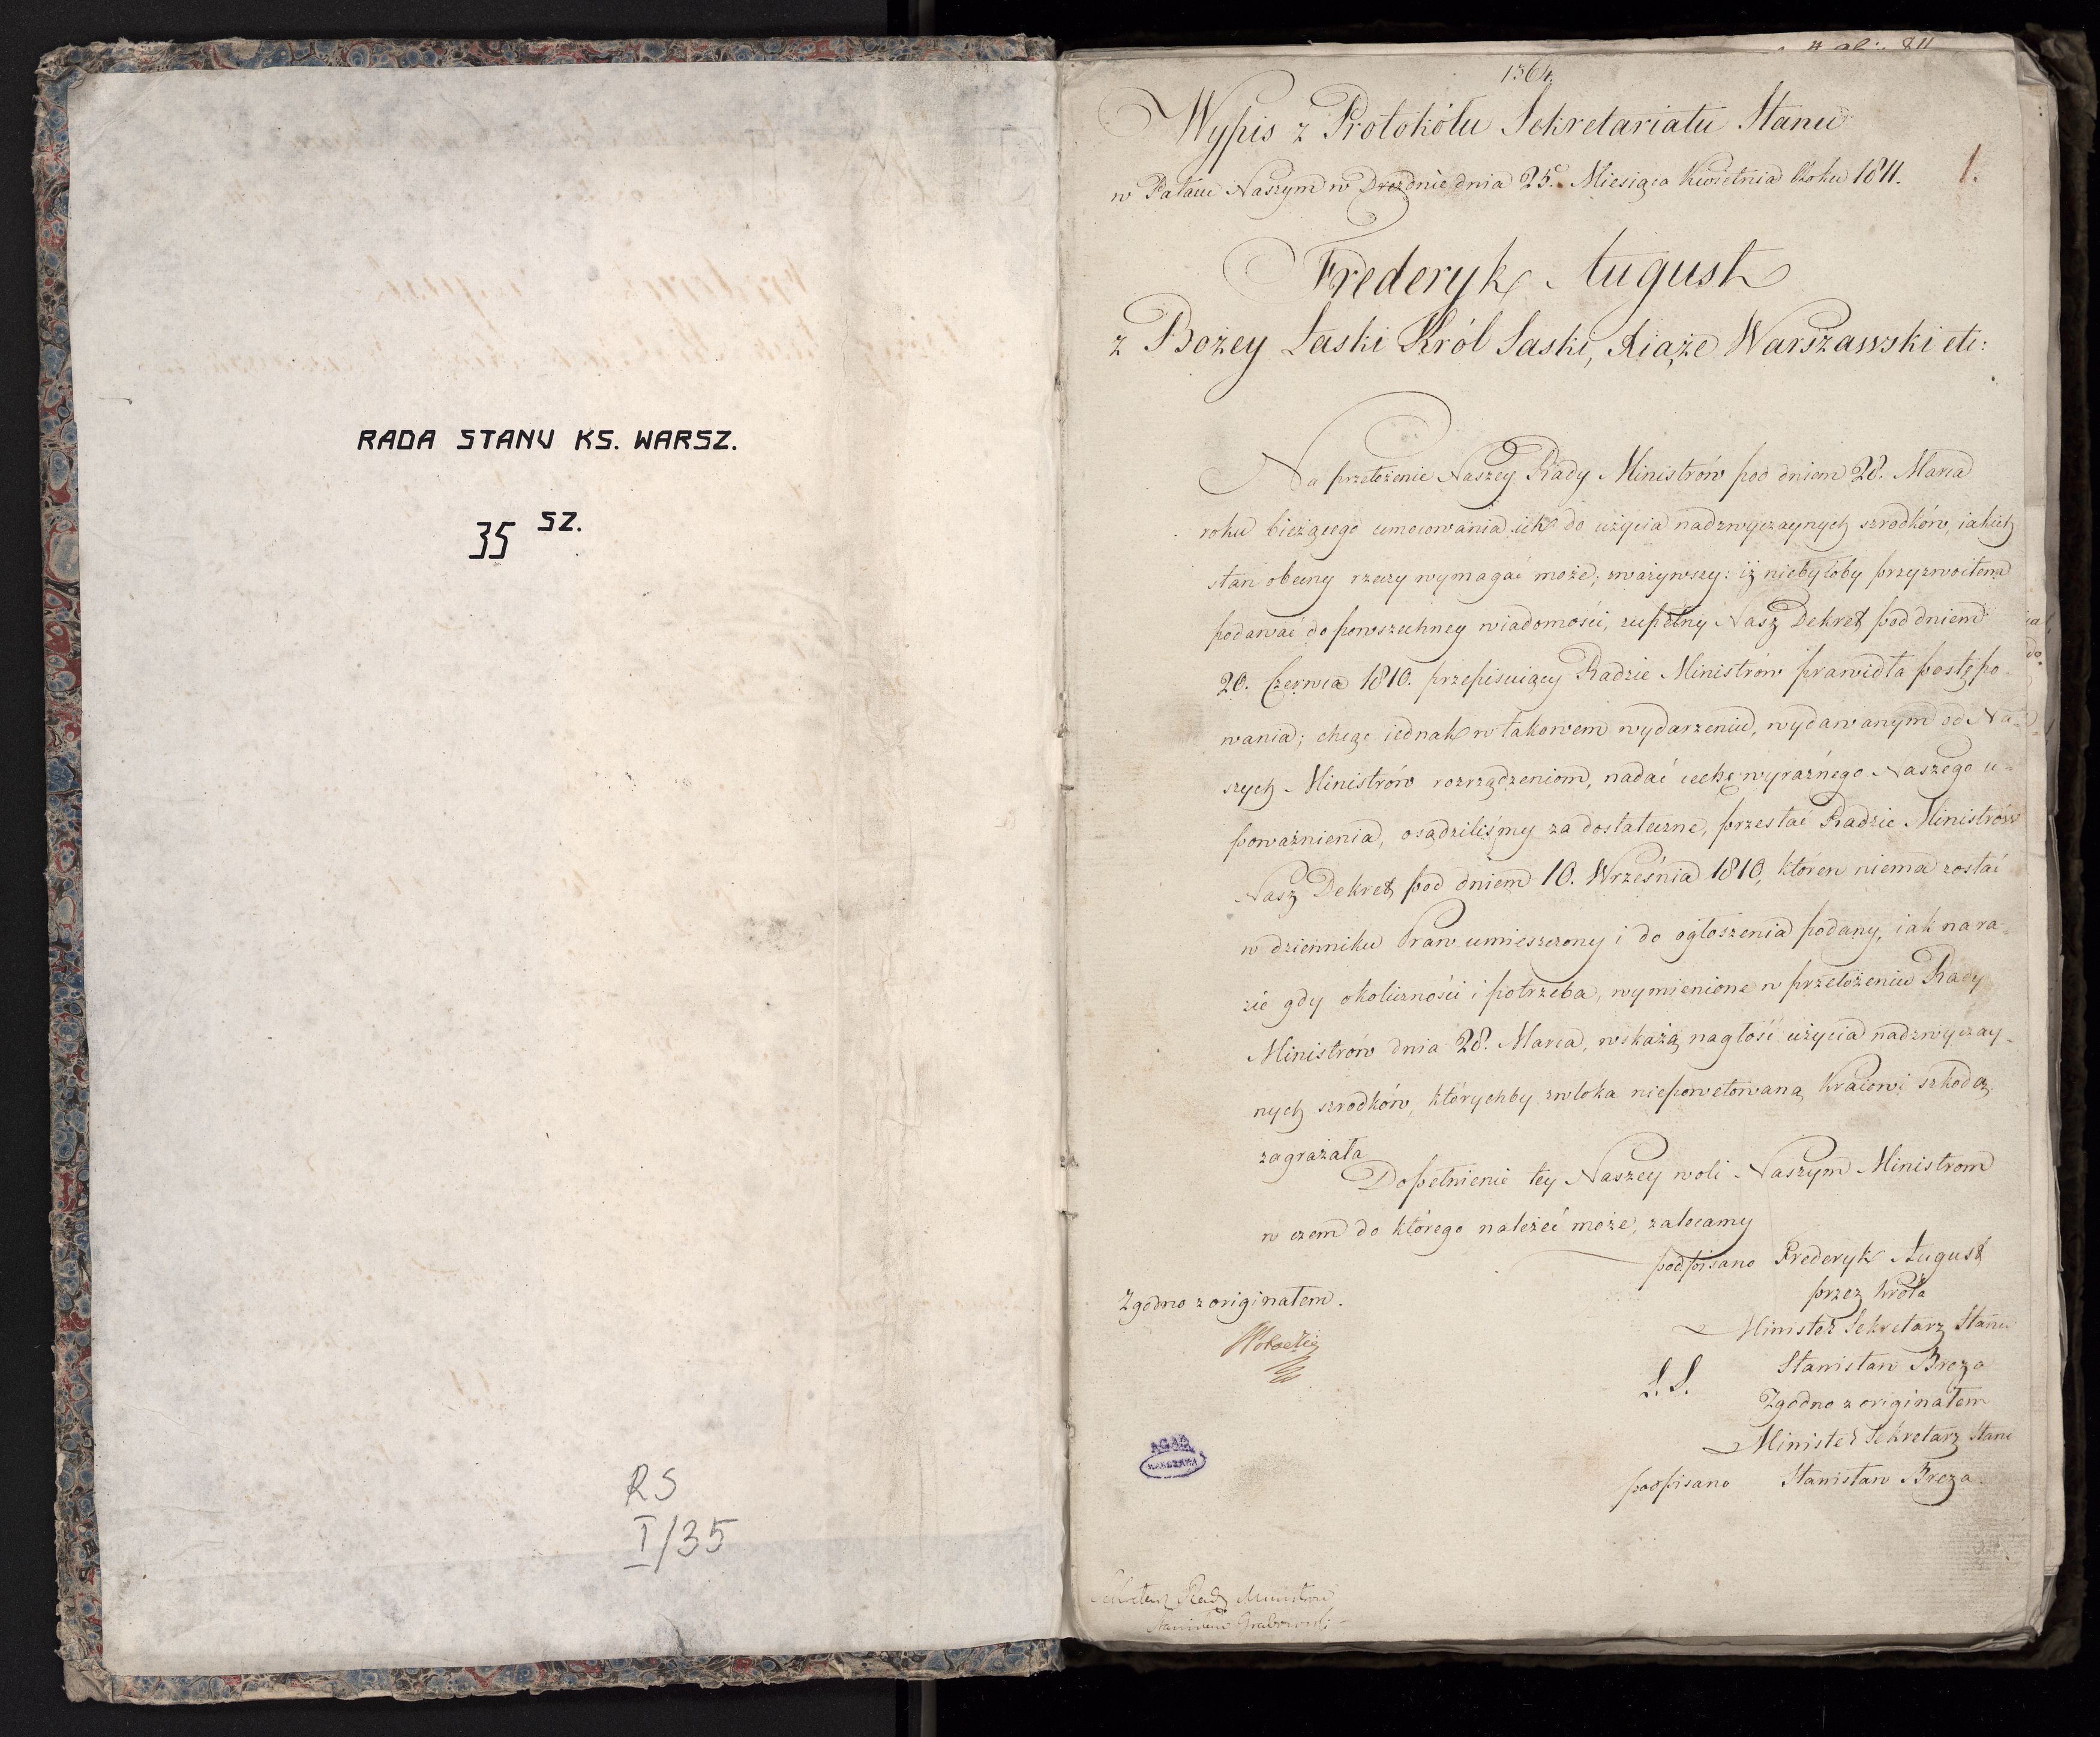 RADA STANU KS. WARSZ.
35 SZ.
RS
I/35
1564.
Wypis z Protokółu Sekretariatu Stanu
w Pałacu Naszym w Dreznie dnia 25. Miesiąca Kwietnia Roku 1811.
1.
Frederyk August
z Bożey Łaski Król Saski, Xiąże Warszawski etc:
Na przełożenie Naszey Rady Ministrów pod dniem 28. Marca
roku bieżącego umocowania ich do użycia nadzwyczaynych szrodków, iakich
stan obecny rzeczy wymagać może; zważywszy: iż niebyłoby przyzwoitem
podawać do powszechney wiadomości, zupełny Nasz Dekret pod dniem
20. Czerwca 1810. przepisuiący Radzie Ministrów prawidła postępo-
wania; chcąc iednak w takowem wydarzeniu, wydawanym od Na-
szych Ministrów rozrządzeniom, nadać cechę wyraźnego Naszego u-
poważnienia, osądziliśmy za dostateczne, przesłać Radzie Ministrów
Nasz Dekret pod dniem 10. Września 1810, któren niema zostać
w dzienniku Praw umieszczony i do ogłoszenia podany, iak na ra-
zie gdy okoliczności i potrzeba, wymienione w przełożeniu Rady
Ministrów dnia 28. Marca, wskażą nagłość użycia nadzwyczay-
nych szrodków, którychby zwłoka niepowetowaną kraiowi szkodą
zagrażała
Dopełnienie tey Naszey woli Naszym Ministrom
w czem do którego należeć może, zalecamy
podpisano Frederyk August
przez Króla
Minister Sekretarz Stanu
L.S. Stanisław Breza
Zgodno z originałem
Minister Sekretarz Stanu
podpisano Stanisław Breza.
Zgodno z originałem.
AGAD
WARSZAWA
Sekretarz Rady Ministrów
Stanisław Grabowski